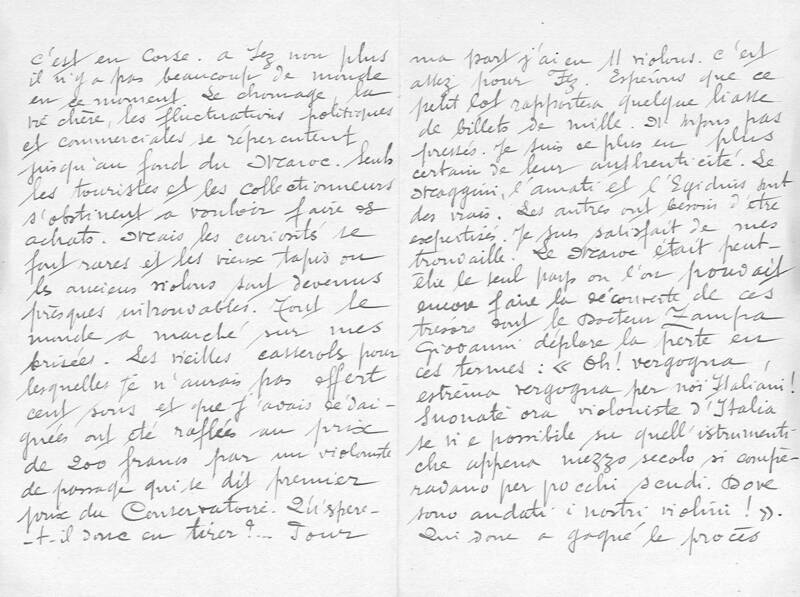 C'est en Corse. A Fez non plus
il n'y a pas beaucoup de monde
en ce moment. Le chomage, la
vie chère, les fluctuations politiques
et commerciales se répercutent
jusqu'au fond du Maroc. Seuls
les touristes et les collectionneurs
s'obstinent a vouloir faire des
achats. Mais les curiosités se
font rares et les vieux tapis ou
les anciens violons sont devenus
presques introuvables. Tout le
monde a marché sur mes
brisées. Les vieilles casserols pour
lesquelles je n'aurais pas offert
cent sous et que j'avais dédai-
gnées ont été raflées au prix
de 200 francs par un violoniste
de passage qui se dit premier
prix du Conservatoire. Qu'espere-
-t-il donc en tirer ?... Pour
ma part j'ai eu 11 violons. C'est
assez pour Fez. Espérons que ce
petit lot rapportera quelque liasse
de billets de mille. Ne soyons pas
pressés. Je suis de plus en plus
certain de leur authenticité. Le
Maggini, l'amati et l'Egidius sont
des vrais. Les autres ont besoin d'être
expertisés. Je suis satisfait de mes
trouvaille. Le Maroc était peut-
être le seul pays ou l'on pouvait
encore faire la découverte de ces
tresors dont le Docteur Zampa
Giovanni déplore la perte en
ces termes : « Oh! vergogna
estrema vergogna per noi Italiani!
Suonate ora violoniste d'Italia
se vi e possibile su quell'istrumenti
che appena mezzo secolo si compe-
ravano per pocchi scudi. Dove
sono andati i nostri violini! ».
Qui donc a gagné le procès